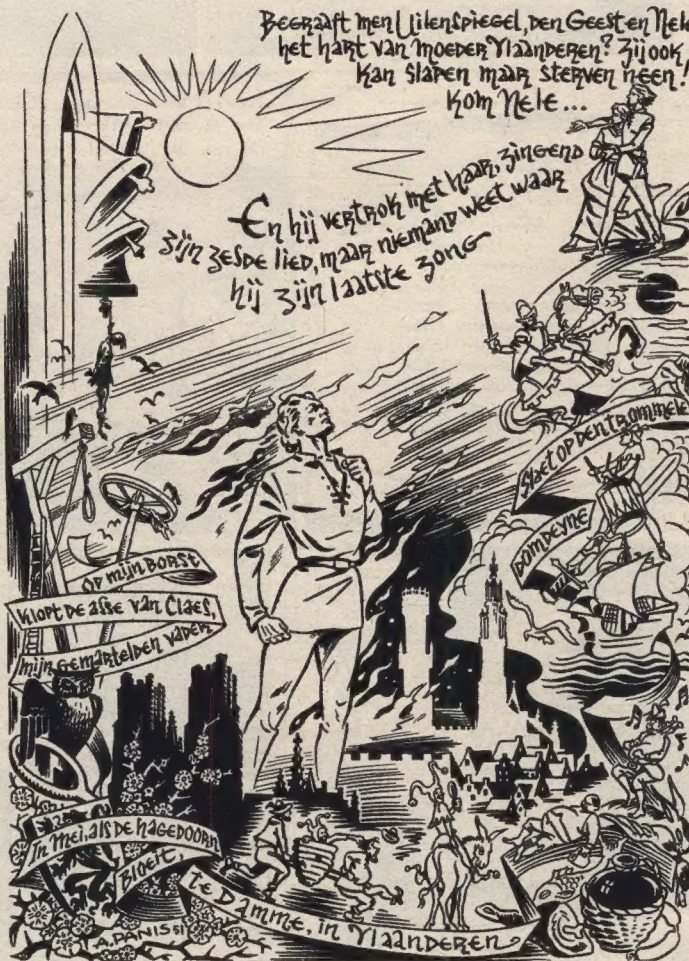 Begraaft men Uilenspiegel, den Geest en Nele
het hart van moeder Vlaanderen? Zij ook
kan slapen maar sterven neen!
Kom Nele...
En hij vertrok met haar, zingend
zijn zesde lied, maar niemand weet waar
hij zijn laatste zong
Slaet op den trommele
Domdeyne
op mijn borst
klopt de asse van Claes,
mijn gemartelden vader
In mei, als de hagedoorn
bloeit,
te Damme, in Vlaanderen
A. PANIS 51